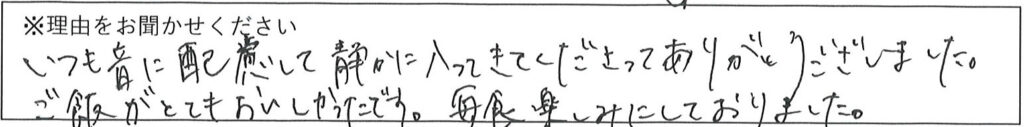 ※理由をお聞かせください
いつも音に配慮して静かに入ってきてくださってありがとうございました。
ご飯がとてもおいしかったです。毎食楽しみにしておりました。